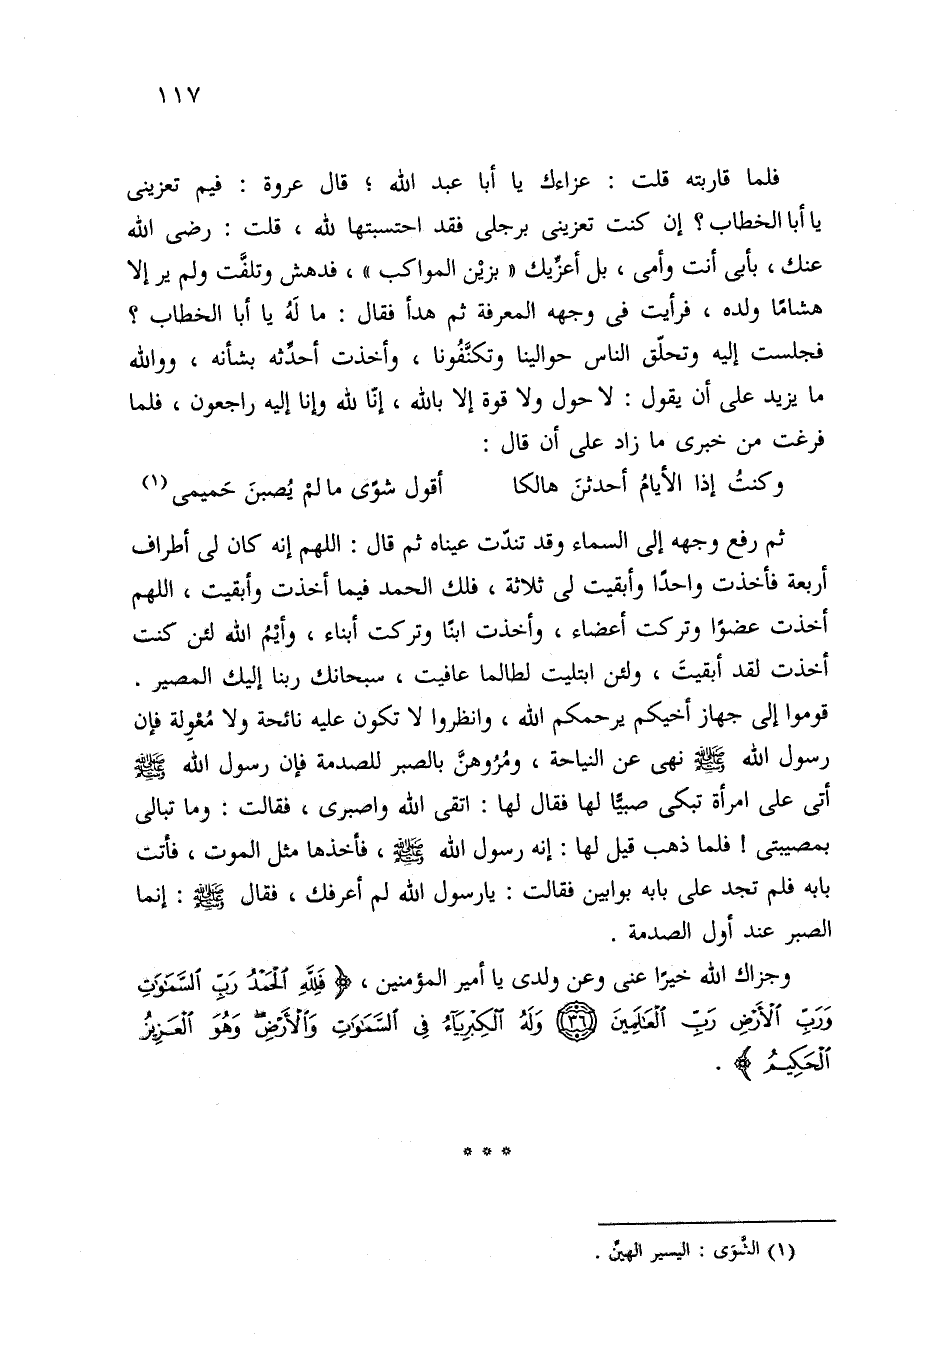 ١١٧
فلما قاربته قلت : عزاءك يا أبا عبد الله ؛ قال عروة : فيم تعزينى
يا أبا الخطاب ؟ إن كنت تعزينى برجلى فقد احتسبتها لله ، قلت : رضى الله
عنك ، بأبى أنت وأمى ، بل أعزِّيك « بزيْن المواكب » ، فدهش وتلفَّت ولم ير إلا
هشامًا ولده ، فرأيت فى وجهه المعرفة ثم هدأ فقال : ما لَهُ يا أبا الخطاب ؟
فجلست إليه وتحلّق الناس حوالينا وتكنَّفُونا ، وأخذت أحدِّثه بشأنه ، ووالله
ما يزيد على أن يقول : لا حول ولا قوة إلا بالله ، إنّا لله وإنا إليه راجعون ، فلما
فرغت من خبرى ما زاد على أن قال :
وكنتُ إذا الأيامُ أحدثنَ هالكا أقول شوًى ما لمْ يُصبنَ حَميمى (١)
ثم رفع وجهه إلى السماء وقد تندّت عيناه ثم قال : اللهم إنه كان لى أطراف
أربعة فأخذت واحدًا وأبقيت لى ثلاثة ، فلك الحمد فيما أخذت وأبقيت ، اللهم
أخذت عضوًا وتركت أعضاء ، وأخذت ابنًا وتركت أبناء ، وأيْمُ الله لئن كنت
أخذت لقد أبقيتَ ، ولئن ابتليت لطالما عافيت ، سبحانك ربنا إليك المصير .
قوموا إلى جهاز أخيكم يرحمكم الله ، وانظروا لا تكون عليه نائحة ولا مُعْوِلة فإن
رسول الله ﷺ نهى عن النياحة ، ومُرُوهنَّ بالصبر للصدمة فإن رسول الله ﷺ
أتى على امرأة تبكى صبيًّا لها فقال لها : اتقى الله واصبرى ، فقالت : وما تبالى
بمصيبتى ! فلما ذهب قيل لها : إنه رسول الله ﷺ ، فأخذها مثل الموت ، فأتت
بابه فلم تجد على بابه بوابين فقالت : يارسول الله لم أعرفك ، فقال ﷺ : إنما
الصبر عند أول الصدمة .
وجزاك الله خيرًا عنى وعن ولدى يا أمير المؤمنين ، ﴿ فَلِلَّهِ ٱلْحَمْدُ رَبِّ ٱلسَّمَٰوَٰتِ
وَرَبِّ ٱلْأَرْضِ رَبِّ ٱلْعَٰلَمِينَ ٣٦ وَلَهُ ٱلْكِبْرِيَآءُ فِى ٱلسَّمَٰوَٰتِ وَٱلْأَرْضِ ۖ وَهُوَ ٱلْعَزِيزُ
ٱلْحَكِيمُ ﴾ .
* * *
(١) الشَّوَى : اليسير الهيِّن .